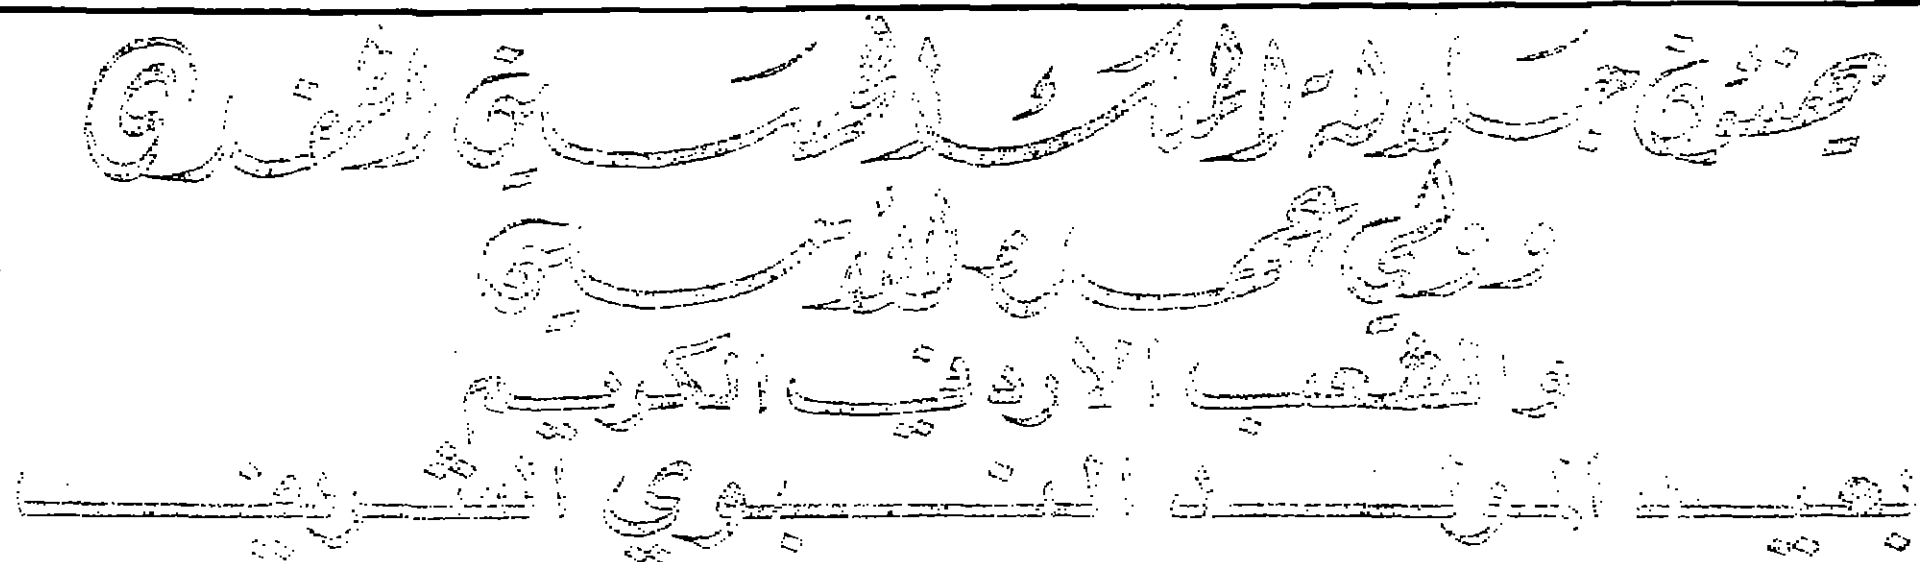 يهنئ جلالة الملك الحسين المفدى
وولي عهده الأمين
والشعب الاردني الكريم
بعيد المولد النبوي الشريف